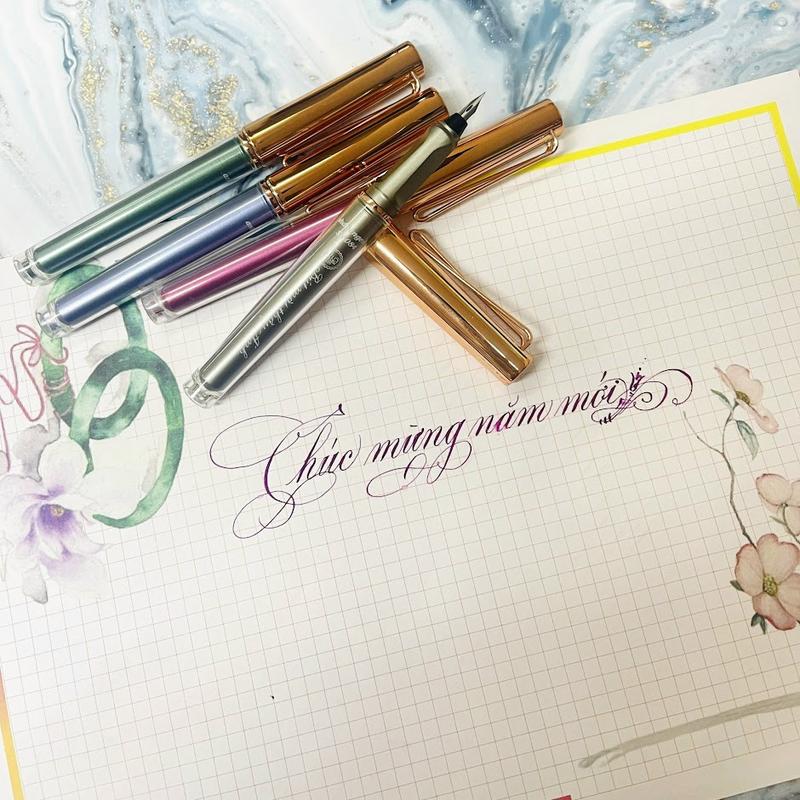 Chúc mừng năm mới